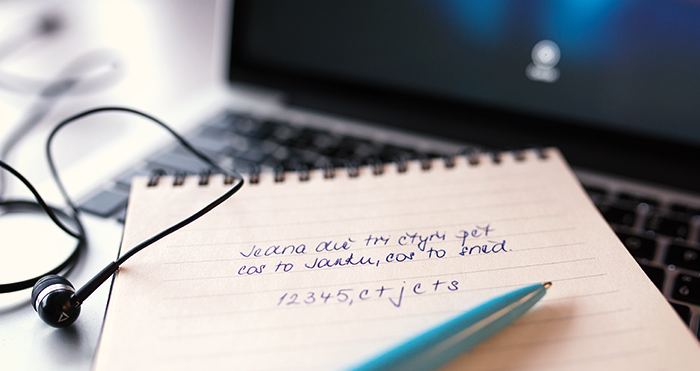 Jedna dvě tři čtyři pět
cos to Janku, cos to sněd.
12345,c+jc+s